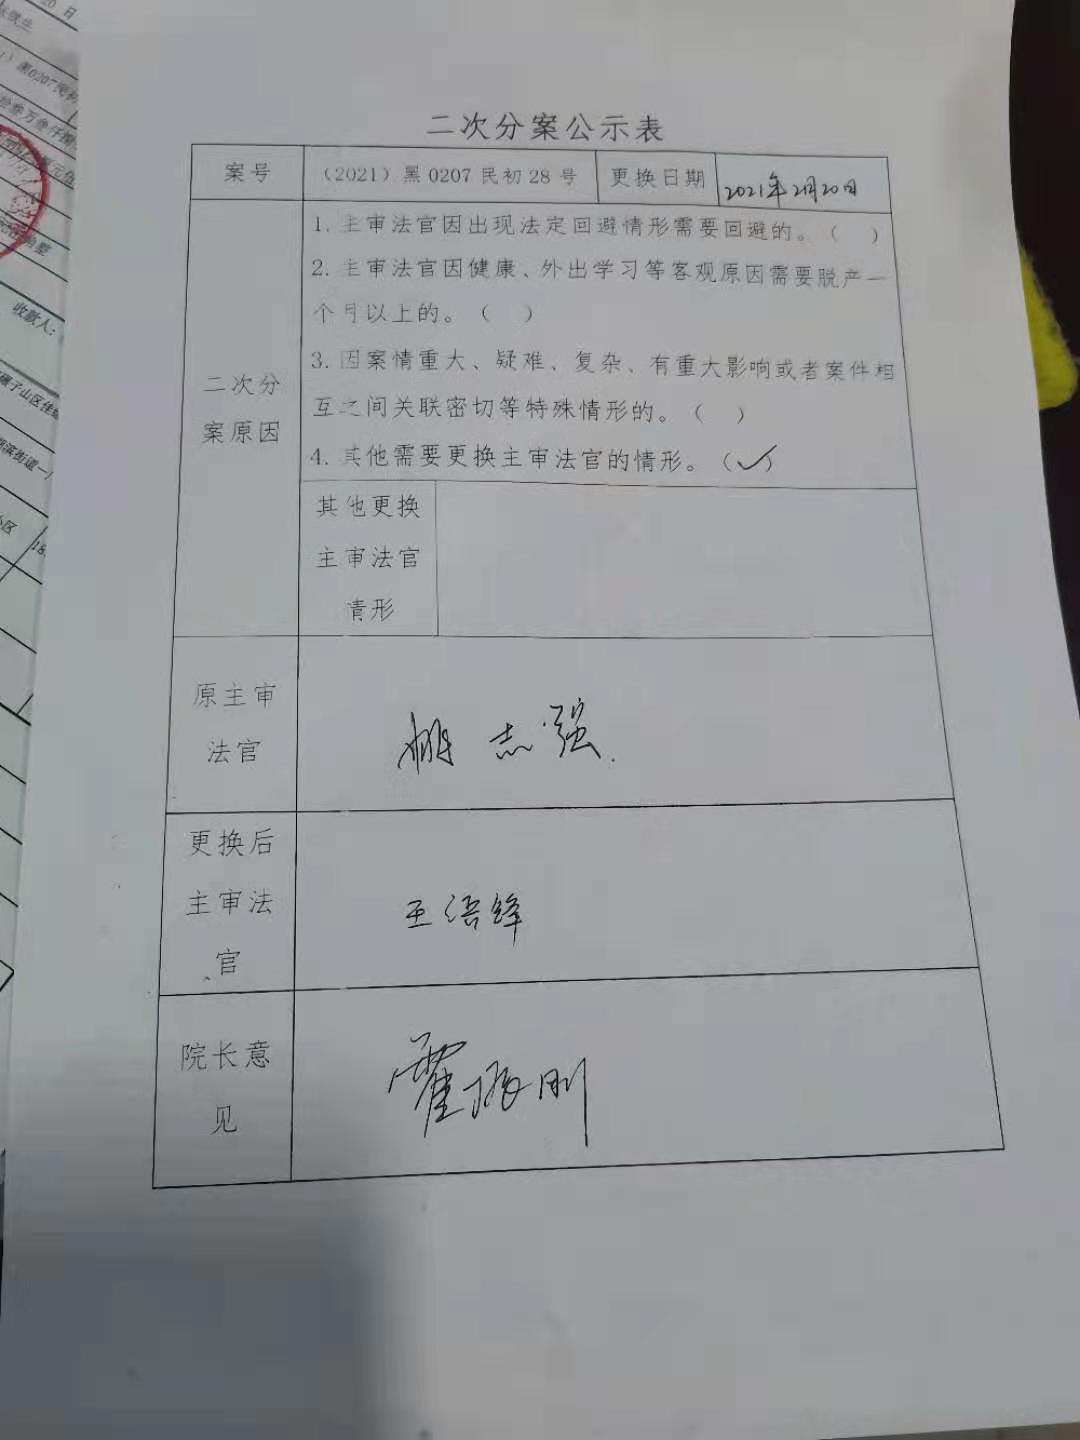 20日
黑0207民初
拾叁万叁仟
收款人:
碾子山区佳
滨街道一
小区
二次分案公示表
案号 (2021)黑0207民初28号 更换日期 2021年2月20日
1. 主审法官因出现法定回避情形需要回避的。( )
2. 主审法官因健康、外出学习等客观原因需要脱产一
个月以上的。( )
3. 因案情重大、疑难、复杂、有重大影响或者案件相
二次分
互之间关联密切等特殊情形的。( )
案原因
4. 其他需要更换主审法官的情形。(✓)
其他更换
主审法官
情形
原主审
法官
志强
更换后
主审法
官
王浯锋
院长意
见
霍振刚